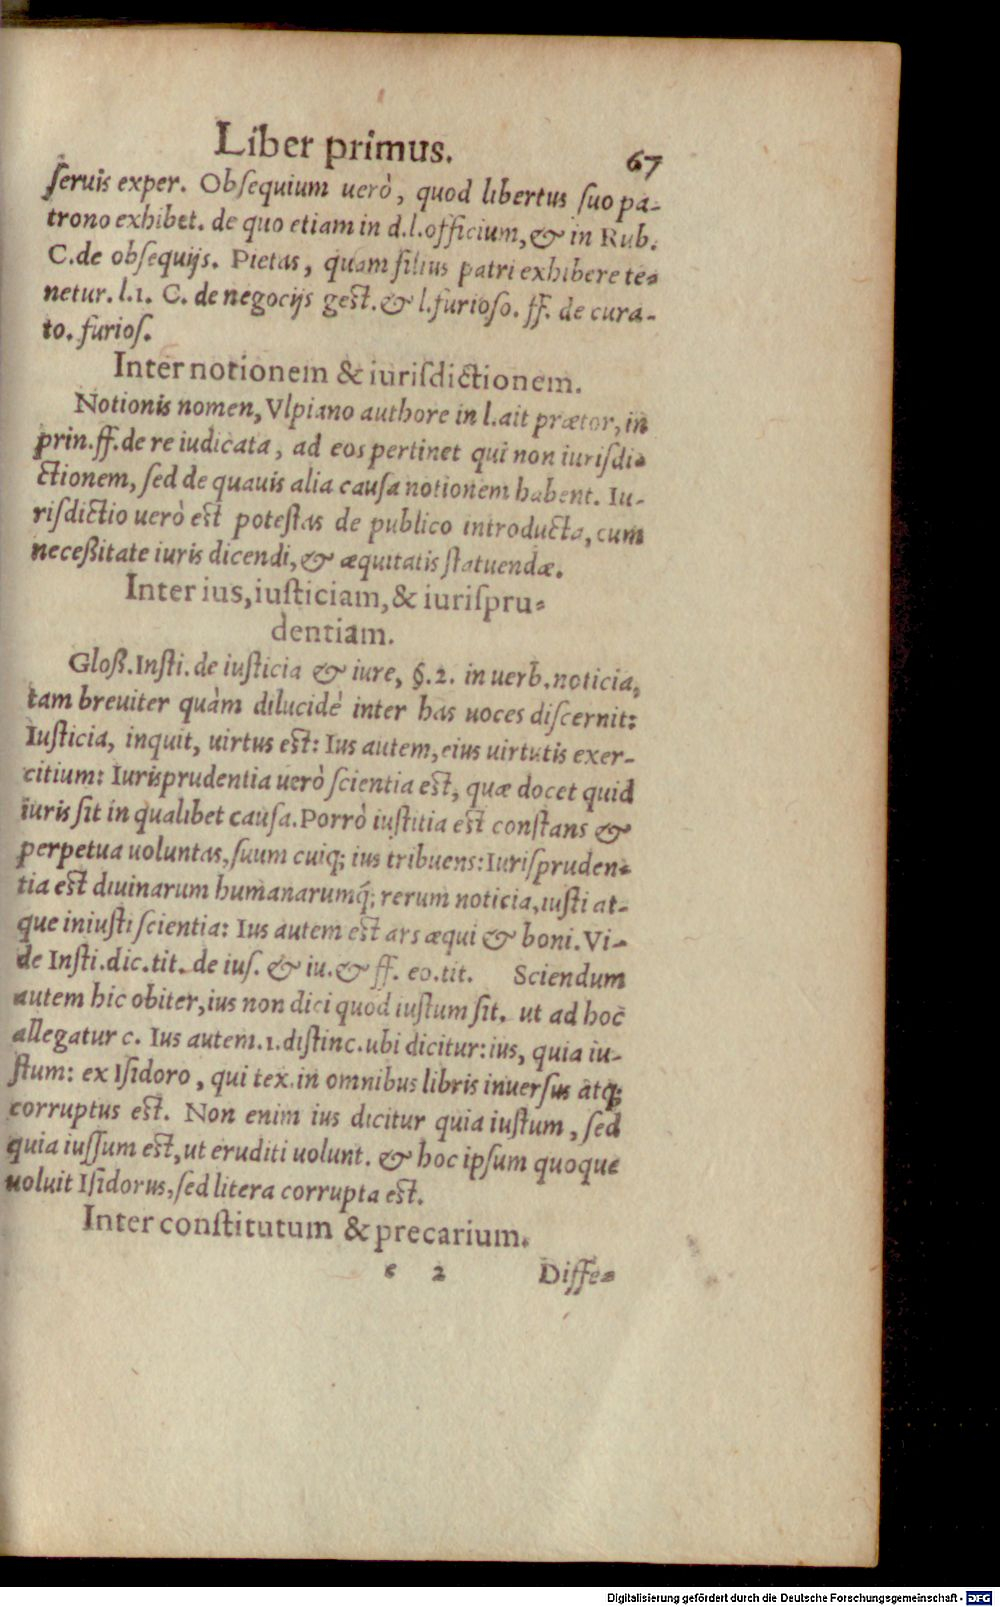 Liber primus. 67
ſeruis exper. Obſequium uerò, quod libertus ſuo pa-
trono exhibet. de quo etiam in d.l.officium, & in Rub.
C.de obſequijs. Pietas, quam filius patri exhibere te-
netur. l.1. C. de negocijs geſt. & l.furioſo. ff. de cura-
to. furioſ.
Inter notionem & iuriſdictionem.
Notionis nomen, Vlpiano authore in l.ait prætor, in
prin.ff.de re iudicata, ad eos pertinet qui non iuriſdi-
ctionem, ſed de quauis alia cauſa notionem habent. Iu-
riſdictio uerò eſt poteſtas de publico introducta, cum
neceßitate iuris dicendi, & æquitatis ſtatuendæ.
Inter ius, iuſticiam, & iuriſpru-
dentiam.
Gloß.Inſti.de iuſticia & iure, §.2. in uerb.noticia,
tam breuiter quàm dilucidè inter has uoces diſcernit:
Iuſticia, inquit, uirtus eſt: Ius autem, eius uirtutis exer-
citium: Iurisprudentia uerò ſcientia eſt, quæ docet quid
iuris ſit in qualibet cauſa. Porrò iuſtitia eſt conſtans &
perpetua uoluntas, ſuum cuiq; ius tribuens: Iuriſpruden-
tia eſt diuinarum humanarumq́; rerum noticia, iuſti at-
que iniuſti ſcientia: Ius autem eſt ars æqui & boni. Vi-
de Inſti.dic.tit. de iuſ. & iu. & ff. eo.tit. Sciendum
autem hic obiter, ius non dici quod iuſtum ſit. ut ad hoc
allegatur c. Ius autem.1.diſtinc.ubi dicitur: ius, quia iu-
ſtum: ex Iſidoro, qui tex.in omnibus libris inuerſus atq;
corruptus eſt. Non enim ius dicitur quia iuſtum, ſed
quia iuſſum eſt, ut eruditi uolunt. & hoc ipſum quoque
uoluit Iſidorus, ſed litera corrupta eſt.
Inter conſtitutum & precarium.
e 2 Diffe-
Digitalisierung gefördert durch die Deutsche Forschungsgemeinschaft - DFG